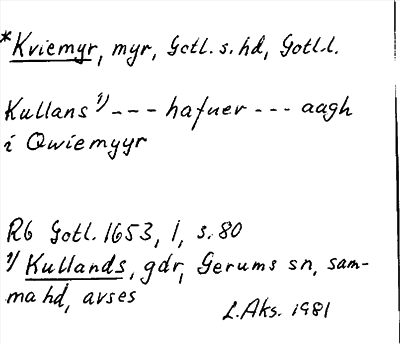 *Kviemyr, myr, Gotl. s. hd, Gotl.l.
Kullans 1) --- hafuer --- aagh
i Qwiemyyr
Rb Gotl. 1653, 1, s. 80
1) Kullands, gdr, Gerums sn, sam-
ma hd, avses
L.Aks. 1981